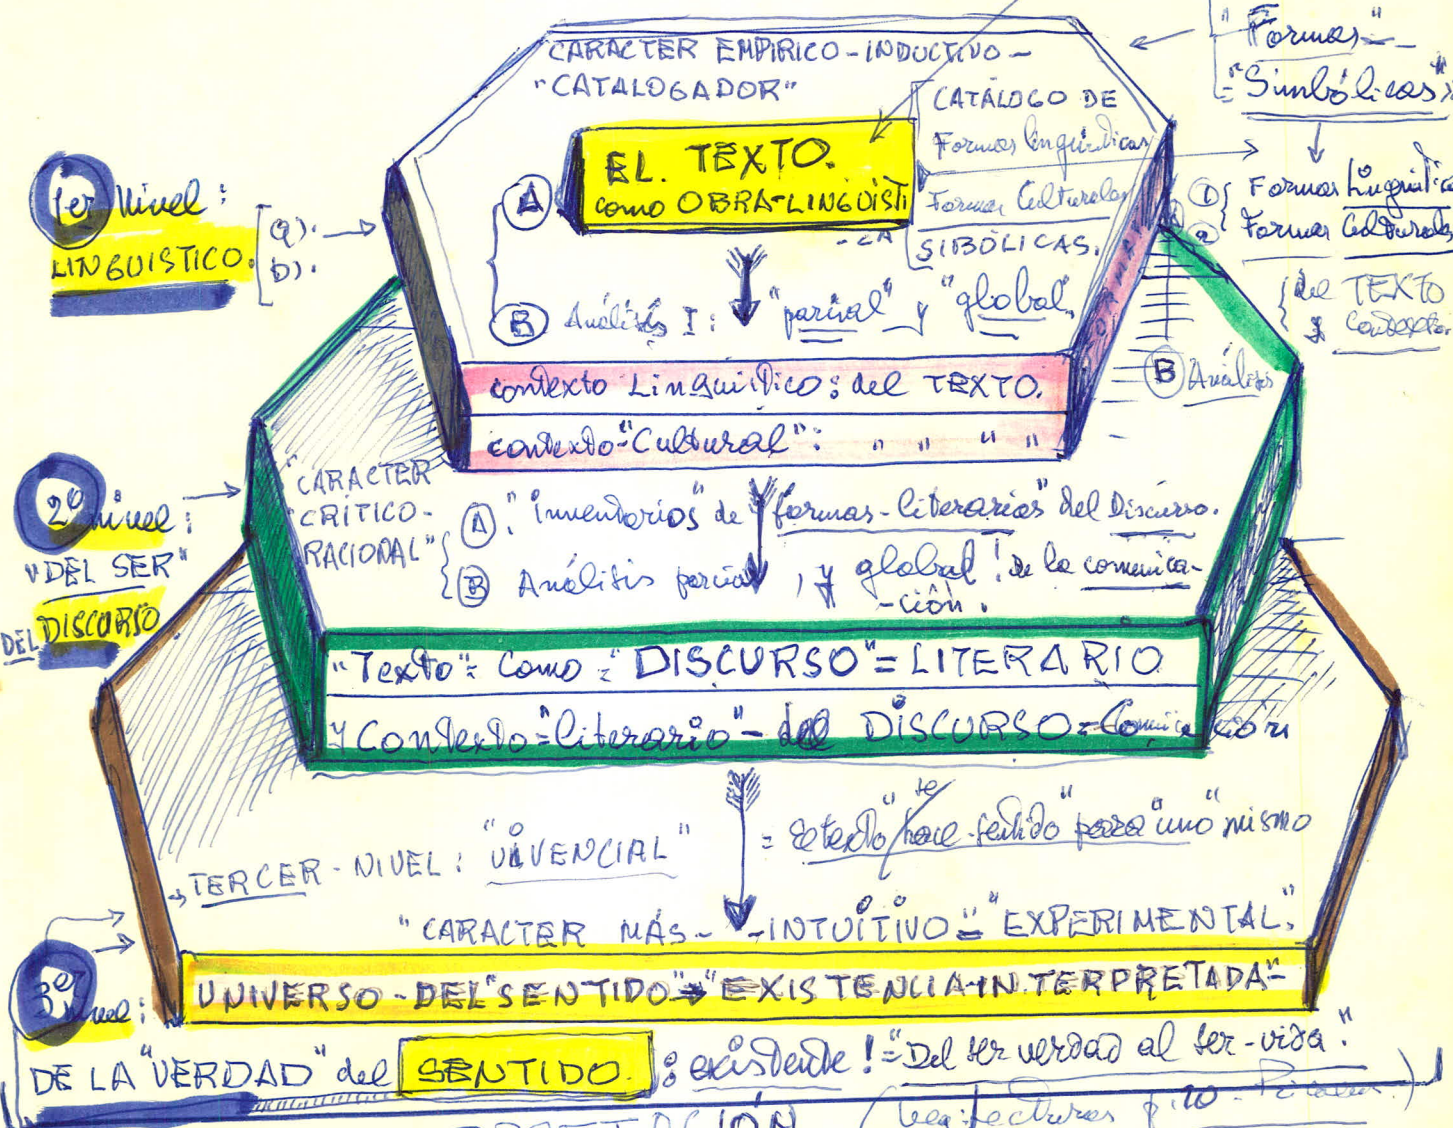 "Formas"
="Simbólicas"
CARACTER EMPIRICO-INDUCTIVO-
"CATALOGADOR"
CATÁLOGO DE
Formas linguísticas
Formas Culturales
SIBÓLICAS.
EL TEXTO.
como OBRA-LINGÜISTI
-CA
A
1er Nivel:
LINGUISTICO.
a).
b).
① Formas Linguistica
② Formas Culturales
del TEXTO
y Contexto.
B Análisis I: "parcial" y "global"
B Análisis
contexto Linguistico: del TEXTO.
contexto-"Cultural": " " " "
2º nivel:
"DEL SER"
DEL DISCURSO
"CARACTER
CRÍTICO-
RACIONAL"
A: "Inventarios" de formas-literarias" del Discurso.
B Análisis parcial, y global! de la comunica-
-ción.
"Texto"= como = "DISCURSO"=LITERARIO
y Contexto="literario"- del DISCURSO=Comunicación
TERCER-NIVEL: "VIVENCIAL"
= el texto "se hace-sentido" para "uno" mismo
"CARACTER MÁS--INTUITIVO="EXPERIMENTAL"
3er nivel:
UNIVERSO-DEL"SENTIDO"→"EXISTENCIA-INTERPRETADA"-
DE LA "VERDAD" del SENTIDO: existente!="Del ser verdad al ser-vida."